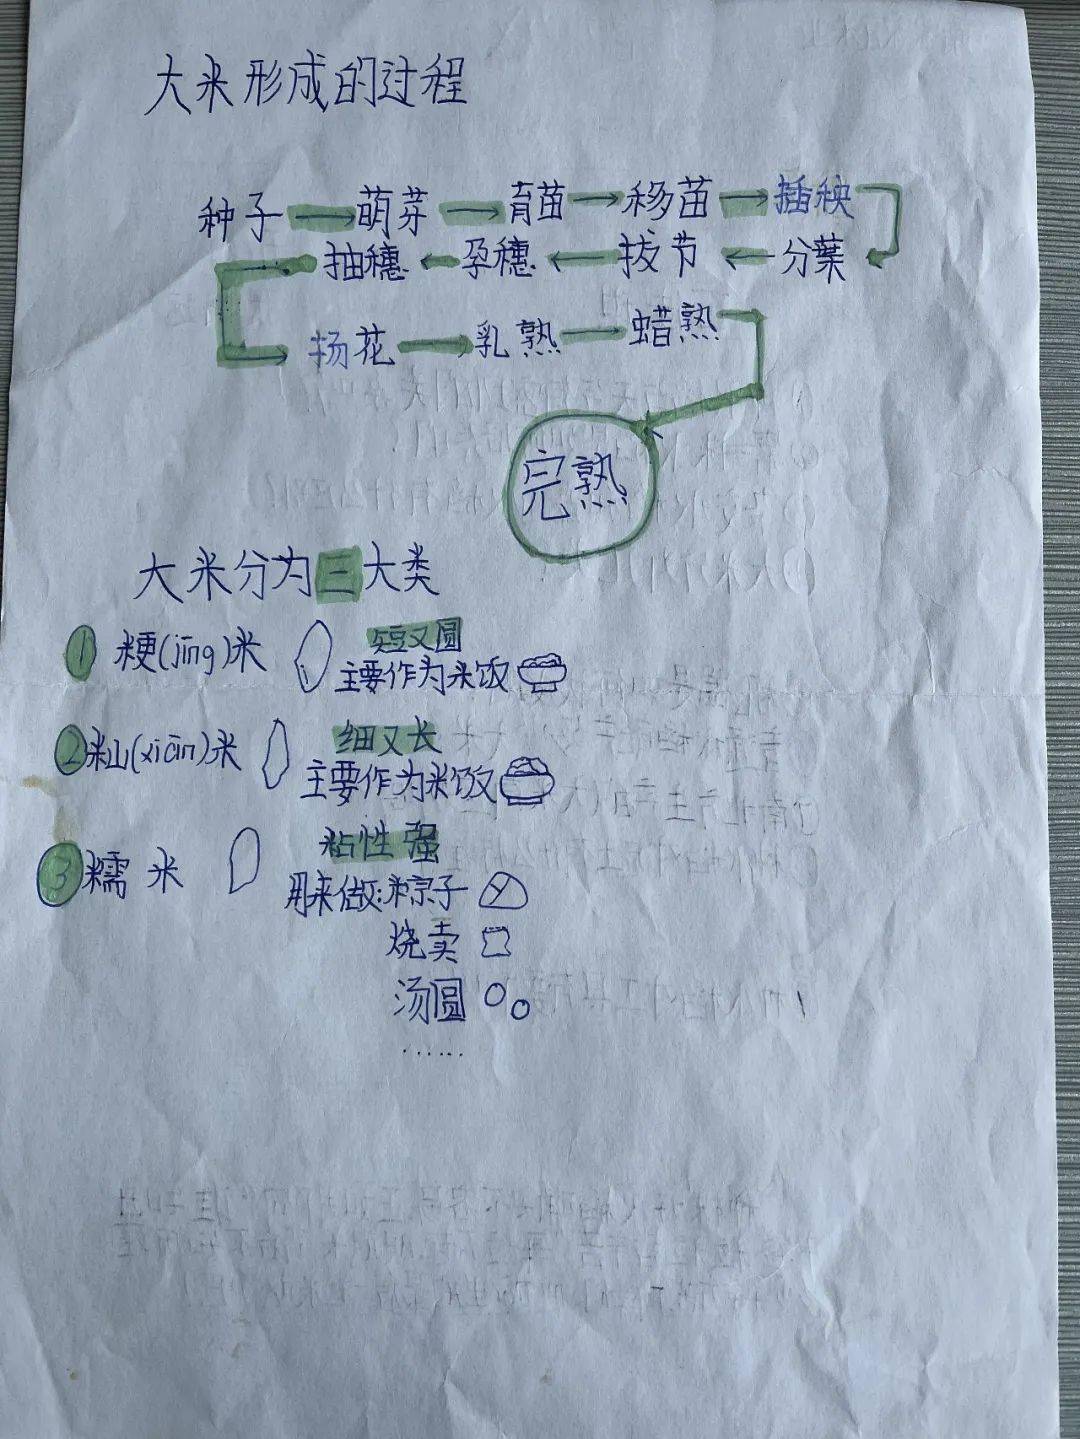 大米形成的过程
种子→萌芽→育苗→移苗→插秧
抽穗←孕穗←拔节←分葉
扬花→乳熟→蜡熟
完熟
大米分为三大类
① 粳(jīng)米 短又圆
主要作为米饭
② 籼(xiān)米 细又长
主要作为米饭
③ 糯米 粘性强
用来做:粽子
烧卖
汤圆
……